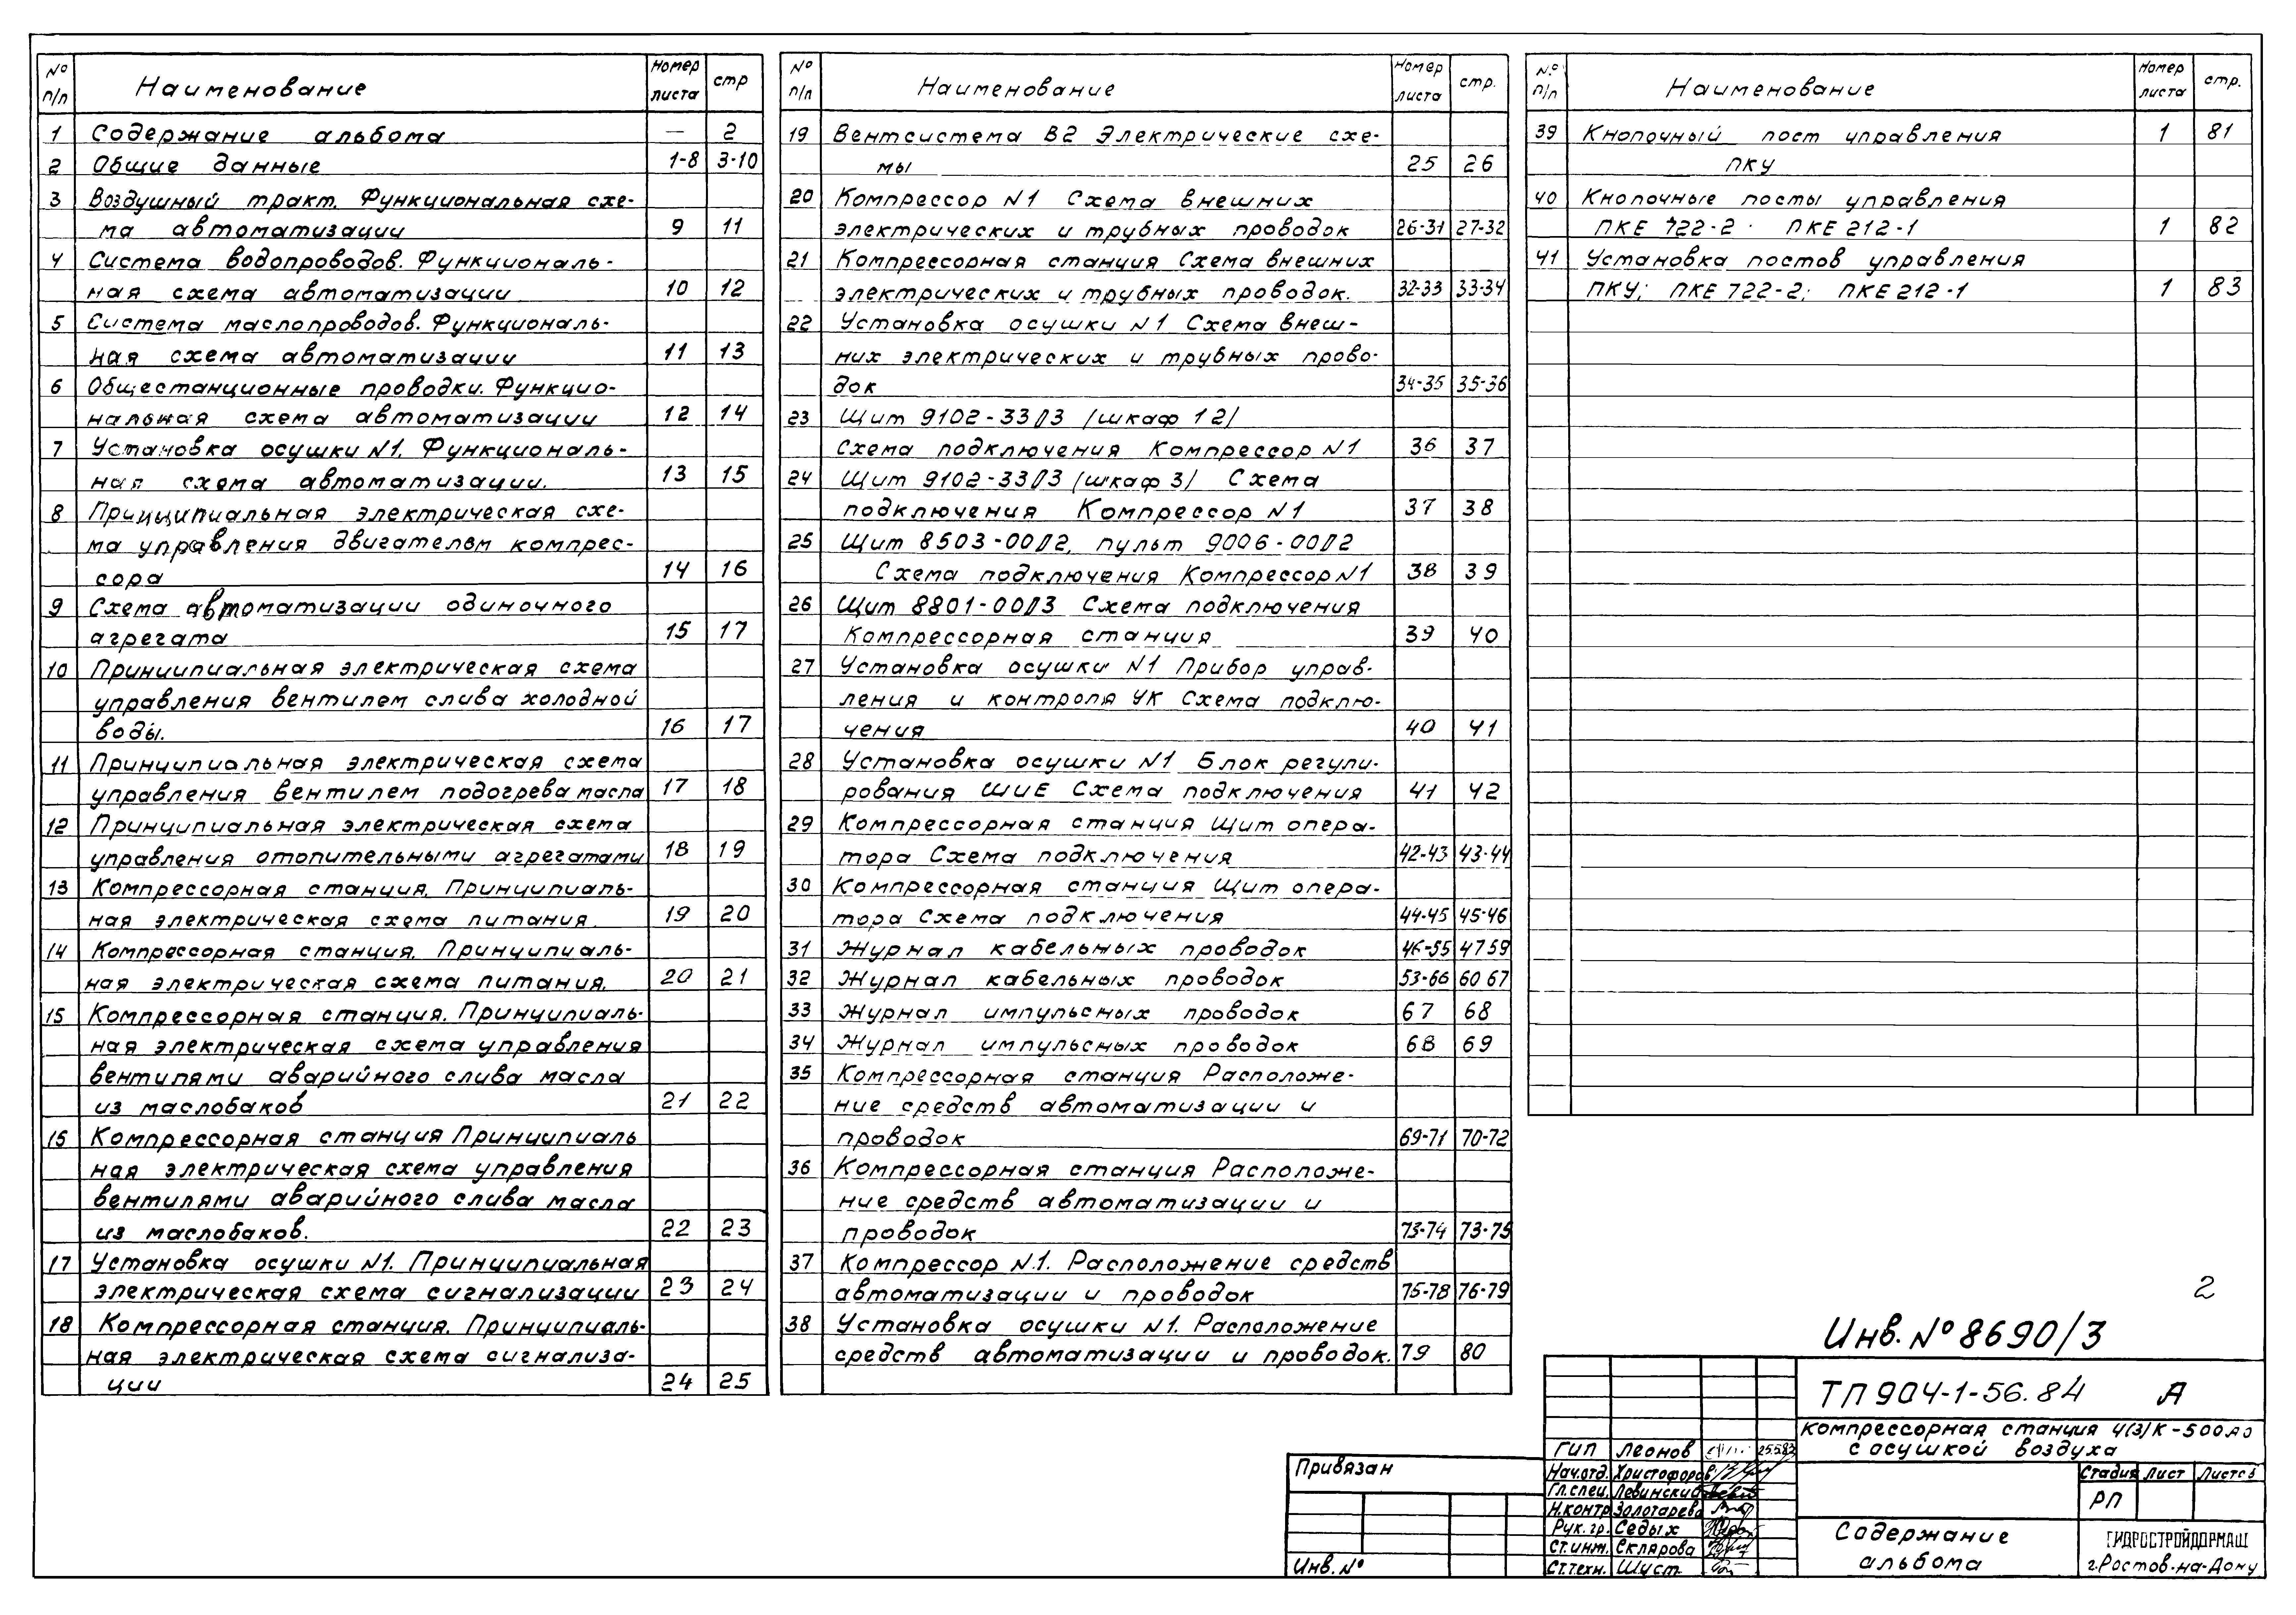 № п/п Наименование Номер листа стр
1 Содержание альбома — 2
2 Общие данные 1-8 3-10
3 Воздушный тракт. Функциональная схе-
ма автоматизации 9 11
4 Система водопроводов. Функциональ-
ная схема автоматизации 10 12
5 Система маслопроводов. Функциональ-
ная схема автоматизации 11 13
6 Общестанционные проводки. Функцио-
нальная схема автоматизации 12 14
7 Установка осушки №1. Функциональ-
ная схема автоматизации. 13 15
8 Принципиальная электрическая схе-
ма управления двигателем компрес-
сора 14 16
9 Схема автоматизации одиночного
агрегата 15 17
10 Принципиальная электрическая схема
управления вентилем слива холодной
воды. 16 17
11 Принципиальная электрическая схема
управления вентилем подогрева масла 17 18
12 Принципиальная электрическая схема
управления отопительными агрегатами 18 19
13 Компрессорная станция. Принципиаль-
ная электрическая схема питания. 19 20
14 Компрессорная станция. Принципиаль-
ная электрическая схема питания. 20 21
15 Компрессорная станция. Принципиаль-
ная электрическая схема управления
вентилями аварийного слива масла
из маслобаков 21 22
16 Компрессорная станция Принципиаль
ная электрическая схема управления
вентилями аварийного слива масла
из маслобаков. 22 23
17 Установка осушки №1. Принципиальная
электрическая схема сигнализации 23 24
18 Компрессорная станция. Принципиаль-
ная электрическая схема сигнализа-
ции 24 25
№ п/п Наименование Номер листа стр.
19 Вентсистема В2 Электрические схе-
мы 25 26
20 Компрессор №1 Схема внешних
электрических и трубных проводок 26-31 27-32
21 Компрессорная станция Схема внешних
электрических и трубных проводок. 32-33 33-34
22 Установка осушки №1 Схема внеш-
них электрических и трубных прово-
док 34-35 35-36
23 Щит 9102-33Д3 /шкаф 1 2/
Схема подключения Компрессор №1 36 37
24 Щит 9102-33Д3 /шкаф 3/ Схема
подключения Компрессор №1 37 38
25 Щит 8503-00Д2, пульт 9006-00Д2
Схема подключения Компрессор №1 38 39
26 Щит 8801-00Д3 Схема подключения
Компрессорная станция 39 40
27 Установка осушки №1 Прибор управ-
ления и контроля УК Схема подклю-
чения 40 41
28 Установка осушки №1 Блок регули-
рования ШИЕ Схема подключения 41 42
29 Компрессорная станция Щит опера-
тора Схема подключения 42-43 43-44
30 Компрессорная станция Щит опера-
тора Схема подключения 44-45 45-46
31 Журнал кабельных проводок 46-55 47 59
32 Журнал кабельных проводок 53-66 60 67
33 Журнал импульсных проводок 67 68
34 Журнал импульсных проводок 68 69
35 Компрессорная станция Расположе-
ние средств автоматизации и
проводок 69-71 70-72
36 Компрессорная станция Расположе-
ние средств автоматизации и
проводок 73-74 73-75
37 Компрессор №1. Расположение средств
автоматизации и проводок 75-78 76-79
38 Установка осушки №1. Расположение
средств автоматизации и проводок. 79 80
№ п/п Наименование Номер листа стр.
39 Кнопочный пост управления 1 81
ПКУ
40 Кнопочные посты управления
ПКЕ 722-2 ПКЕ 212-1 1 82
41 Установка постов управления
ПКУ; ПКЕ 722-2; ПКЕ 212-1 1 83
2
Инв. № 8690/3
ТП 904-1-56.84 А
Компрессорная станция 4(3)К-500АО
с осушкой воздуха
ГИП Леонов 25.5.83
Нач.отд. Христофоров
Гл.спец. Левинский
Н.контр Золотарева
Рук.гр. Седых
Ст.инж. Склярова
Ст.техн. Шуст
Стадия Лист Листов
РП
Содержание
альбома
ГИПРОСТРОЙДОРМАШ
г.Ростов-на-Дону
Привязан
Инв. №